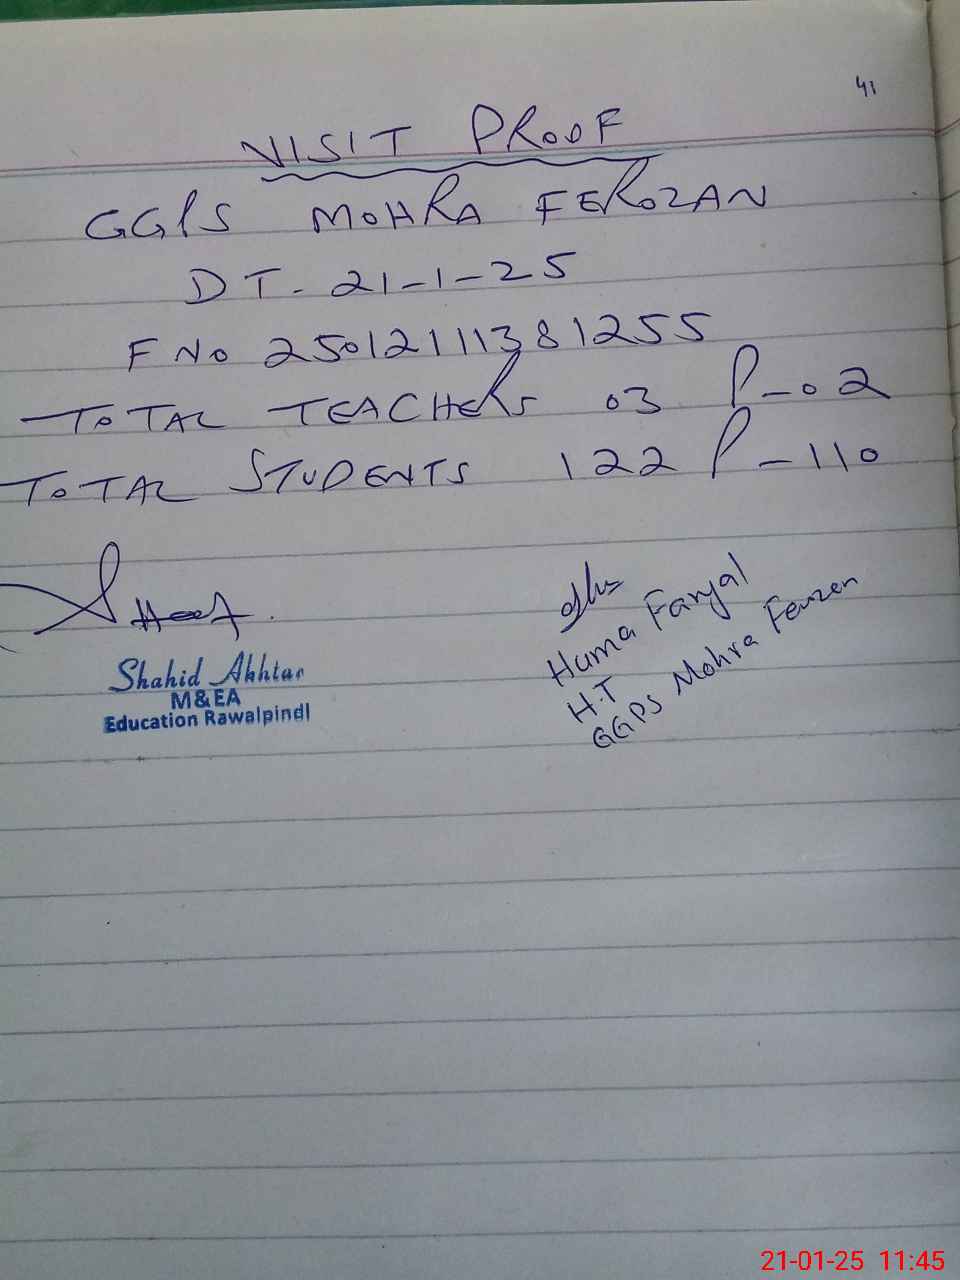 41
VISIT PROOF
GGPS MOHRA FEROZAN
DT. 21-1-25
F NO 25012111381255
TOTAL TEACHERS 03 P-02
TOTAL STUDENTS 122 P-110
Shahid Akhtar
M&EA
Education Rawalpindi
Huma Faryal
H.T
GGPS Mohra Ferozan
21-01-25 11:45